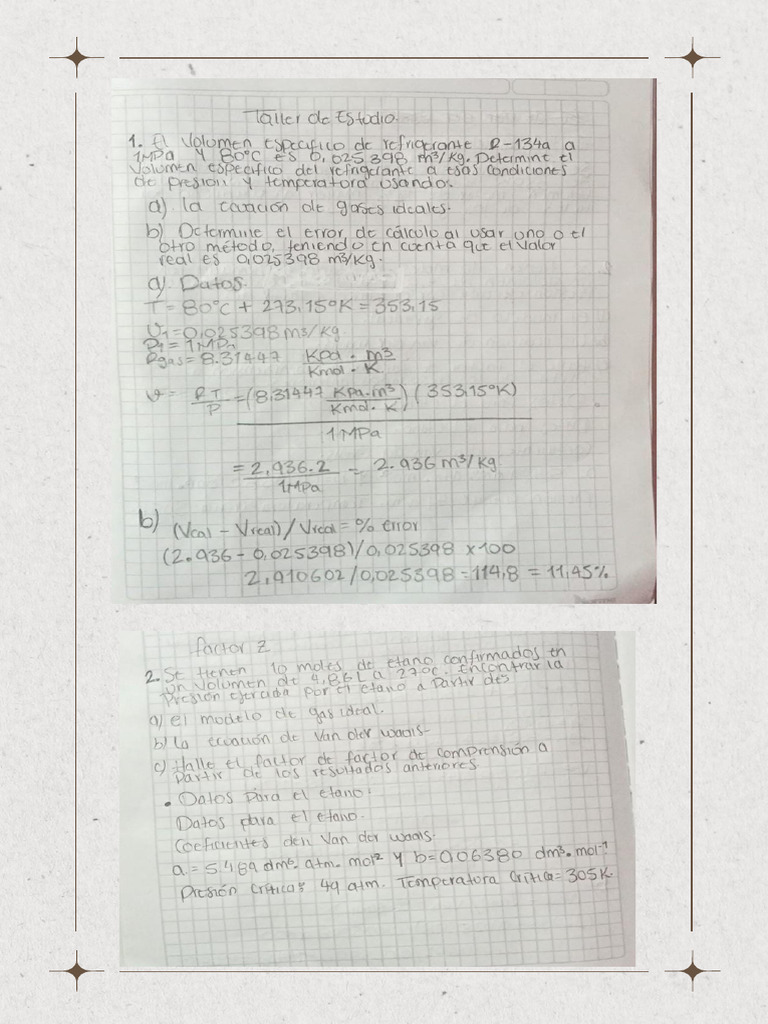 Taller de Estudio.
1. El Volumen especifico de refrigerante R-134a a
1MPa Y 80°C es 0,025398 m³/kg. Determine el
Volumen especifico del refrigerante a esas condiciones
de presion y temperatura usando:
a) la ecuación de gases ideales.
b) Determine el error, de cálculo al usar uno o el
otro método, teniendo en cuenta que el valor
real es 0,025398 m³/kg.
a) Datos.
T = 80°C + 273,15°K = 353,15
V1 = 0,025398 m3/kg
P1 = 1MPa
Rgas = 8.31447 KPa . m³ / Kmol . K
v = RT/P = (8,31447 KPa.m³ / Kmol. K) (353,15°K)
1 MPa
= 2,936.2 / 1MPa = 2.936 m³/kg.
b) (Vcal - Vreal) / Vreal = % error
(2.936 - 0,025398) / 0,025398 x100
2,910602 / 0,025398 = 114,8 = 11,45%
factor Z
2. Se tienen 10 moles de etano confirmados en
un volumen de 4,86 L a 27°C. Encontrar la
Presión ejercida por el etano a Partir des
a) el modelo de gas ideal.
b) la ecuación de Van der waals-
c) Halle el factor de factor de comprensión a
partir de los resultados anteriores.
• Datos Para el etano:
Datos para el etano.
Coeficientes den Van der waals-
a = 5.489 dm⁶. atm. mol² Y b = 0,06380 dm³. mol⁻¹
Presión crítica: 49 atm. Temperatura crítica = 305 K.